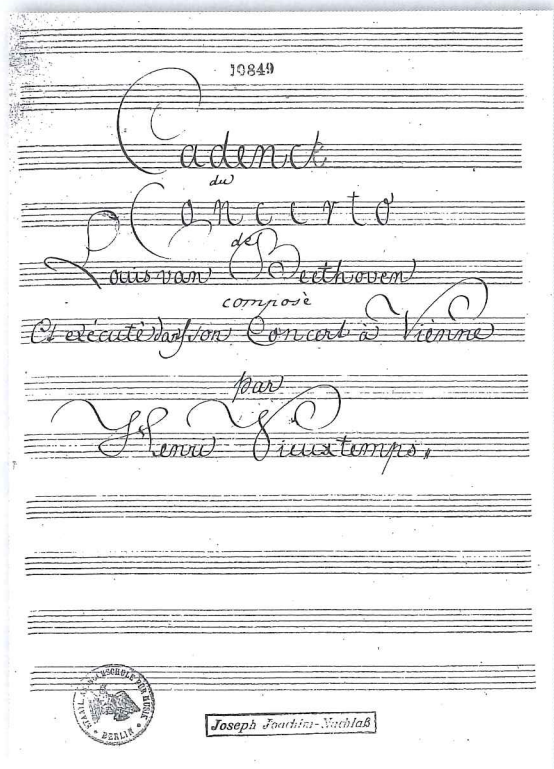 10849
Cadence
du
Concerto
de
Louis van Beethoven
composè
Et exécuté dans son Concert à Viénne
par
Henri Vieuxtemps
STAATL. AKAD. HOCHSCHULE FÜR MUSIK
BERLIN
Joseph Joachim-Nachlaß